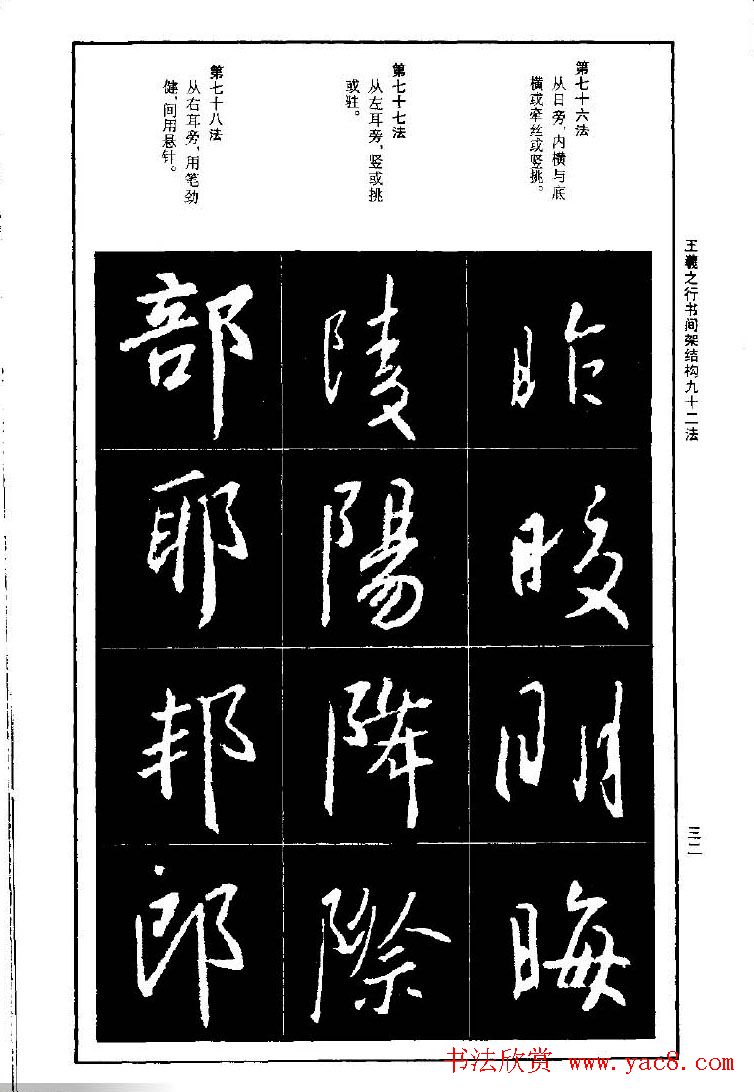 王羲之行书间架结构九十二法
三二
第七十六法
从日旁,内横与底
横或牵丝或竖挑。
第七十七法
从左耳旁,竖或挑
或驻。
第七十八法
从右耳旁,用笔劲
健,间用悬针。
昨
晙
明
晦
陵
陽
降
際
部
耶
邦
郎
书法欣赏 www.yac8.com